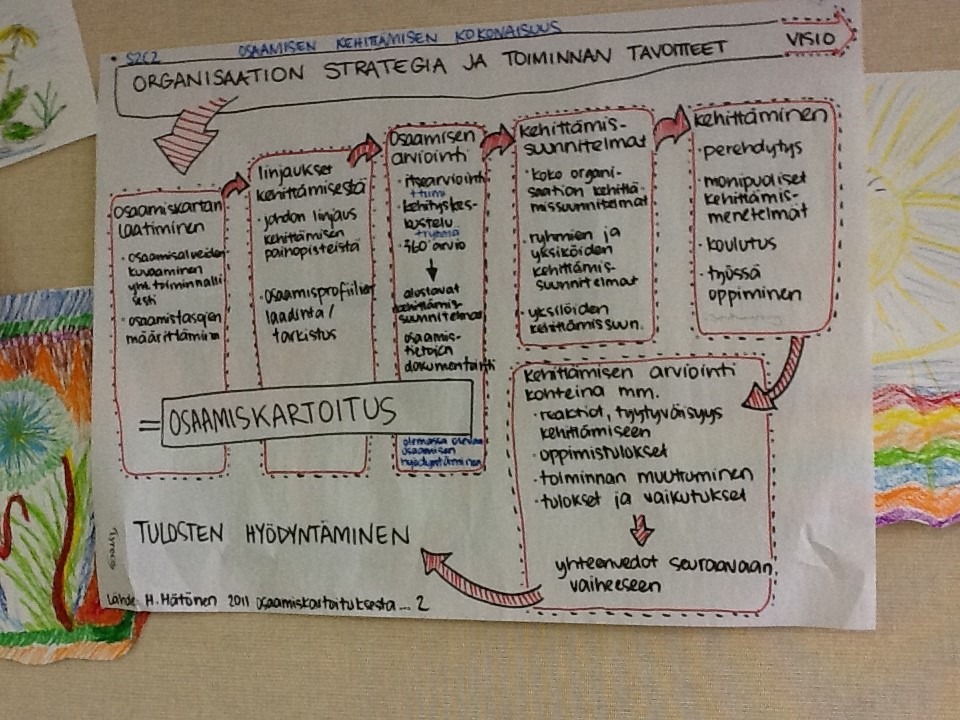 • S2C2 OSAAMISEN KEHITTÄMISEN KOKONAISUUS
ORGANISAATION STRATEGIA JA TOIMINNAN TAVOITTEET
VISIO
Osaamiskartan
laatiminen
• osaamisalueiden
kuvaaminen
yht. toiminnalli
sesti
• osaamistasojen
määrittäminen
linjaukset
kehittämisestä
• johdon linjaus
kehittämisen
painopisteistä
• osaamisprofiilien
laadinta/
tarkistus
Osaamisen
arviointi
• itsearviointi
+ tiimi
• kehityskes-
kustelu
+ ryhmä
• 360° arvio
alustavat
kehittämis-
suunnitelmat
osaamis-
tietojen
dokumentointi
= OSAAMISKARTOITUS
olemassa olevan
osaamisen
hyödyntäminen
kehittämis-
suunnitelmat
• koko organi-
saation kehittä-
missuunnitelmat
• ryhmien ja
yksiköiden
kehittämis-
suunnitelmat
• yksilöiden
kehittämissuun.
kehittäminen
• perehdytys
• monipuoliset
kehittämis-
menetelmät
• koulutus
• työssä
oppiminen
kehittämisen arviointi
kohteina mm.
• reaktiot, tyytyväisyys
kehittämiseen
• oppimistulokset
• toiminnan muuttuminen
• tulokset ja vaikutukset
yhteenvedot seuraavaan
vaiheeseen
TULOSTEN HYÖDYNTÄMINEN
Lähde H. Hätönen 2011 osaamiskartoituksesta... 2